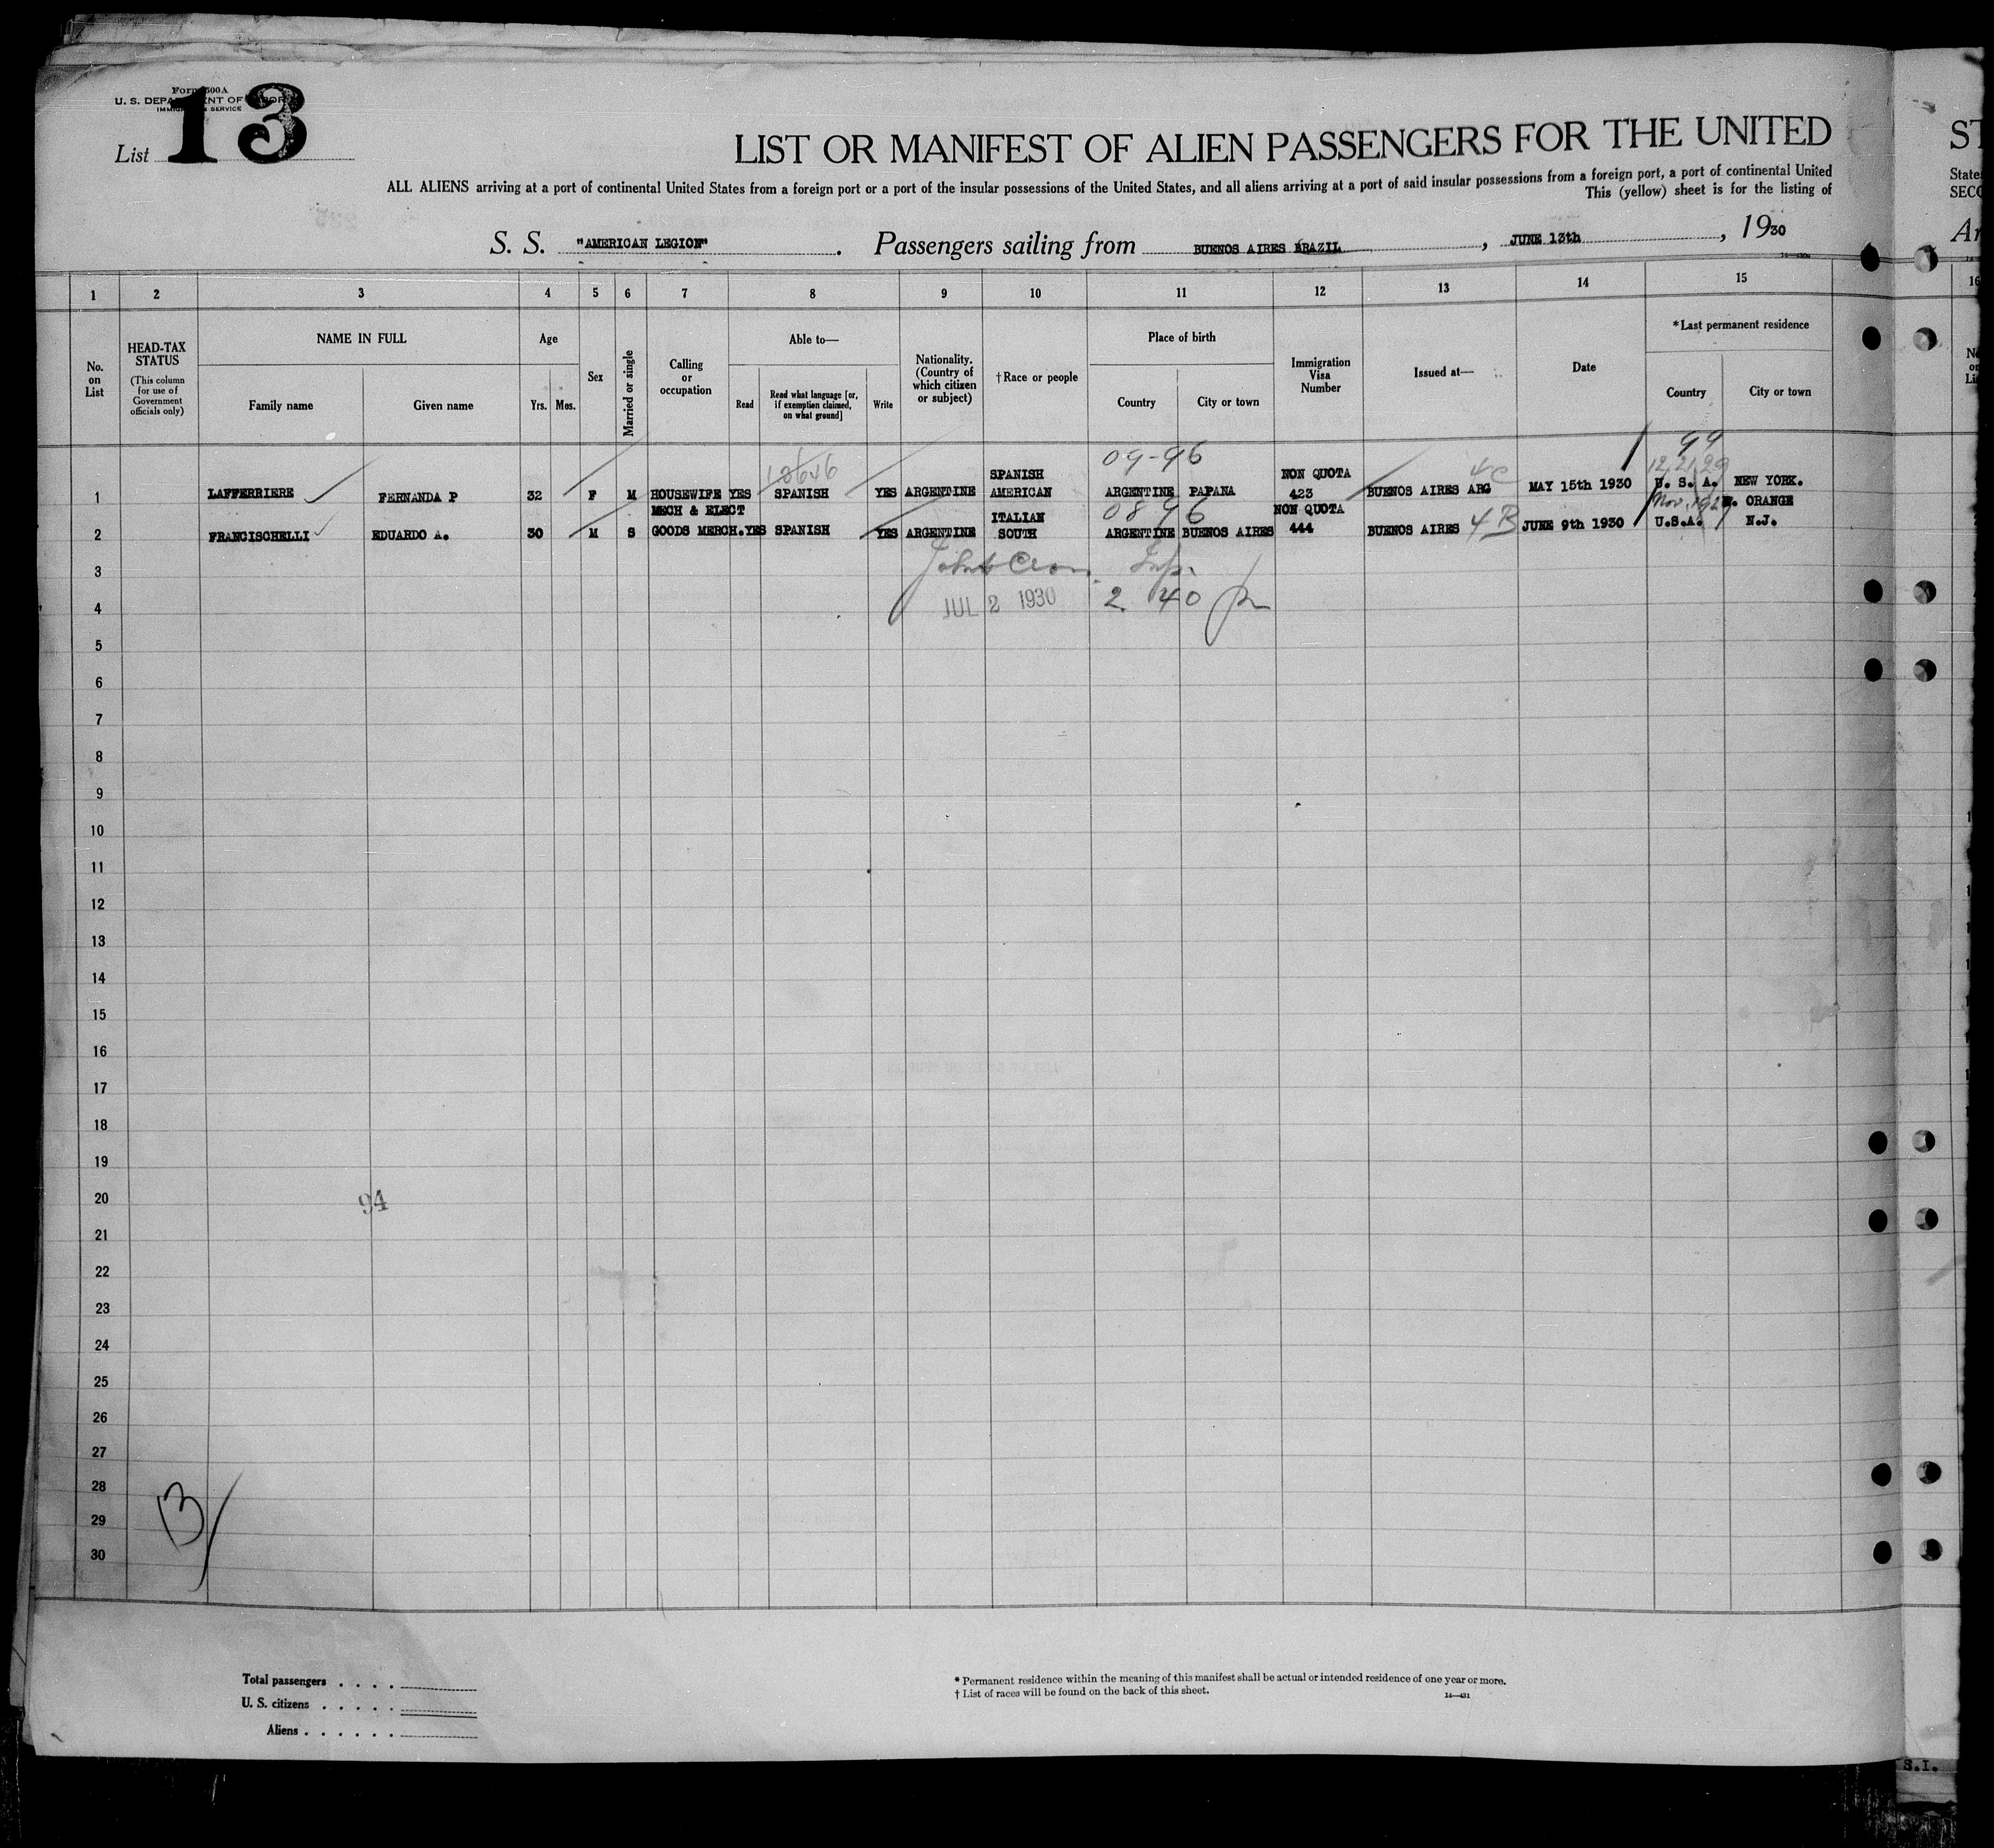 Form 500A
U. S. DEPARTMENT OF LABOR
IMMIGRATION SERVICE
List 13
LIST OR MANIFEST OF ALIEN PASSENGERS FOR THE UNITED
ST
ALL ALIENS arriving at a port of continental United States from a foreign port or a port of the insular possessions of the United States, and all aliens arriving at a port of said insular possessions from a foreign port, a port of continental United
State
This (yellow) sheet is for the listing of
SECO
S. S. "AMERICAN LEGION". Passengers sailing from BUENOS AIRES BRAZIL, JUNE 13th, 1930
Ar
1 2 3 4 5 6 7 8 9 10 11 12 13 14 15 16
No. on List
HEAD-TAX STATUS
(This column for use of Government officials only)
NAME IN FULL
Family name
Given name
Age
Yrs.
Mos.
Sex
Married or single
Calling or occupation
Able to—
Read
Read what language [or, if exemption claimed, on what ground]
Write
Nationality. (Country of which citizen or subject)
†Race or people
Place of birth
Country
City or town
Immigration Visa Number
Issued at—
Date
*Last permanent residence
Country
City or town
09-96
99
12/21/29
4c
1 LAFFERRIERE FERNANDA P 32 F M HOUSEWIFE YES SPANISH YES ARGENTINE SPANISH AMERICAN ARGENTINE PAPANA NON QUOTA 423 BUENOS AIRES ARG MAY 15th 1930 U. S. A. NEW YORK.
0896
2 FRANCISCHELLI EDUARDO A. 30 M S MECH & ELECT GOODS MERCH. YES SPANISH YES ARGENTINE ITALIAN SOUTH ARGENTINE BUENOS AIRES NON QUOTA 444 BUENOS AIRES 4B JUNE 9th 1930 U.S.A. ORANGE N.J.
3
4 JUL 2 1930 2 40 pm
5
6
7
8
9
10
11
12
13
14
15
16
17
18
19
20
94
21
22
23
24
25
26
27
28
13
29
30
Total passengers
U. S. citizens
Aliens
* Permanent residence within the meaning of this manifest shall be actual or intended residence of one year or more.
† List of races will be found on the back of this sheet.
14—431
S.I.